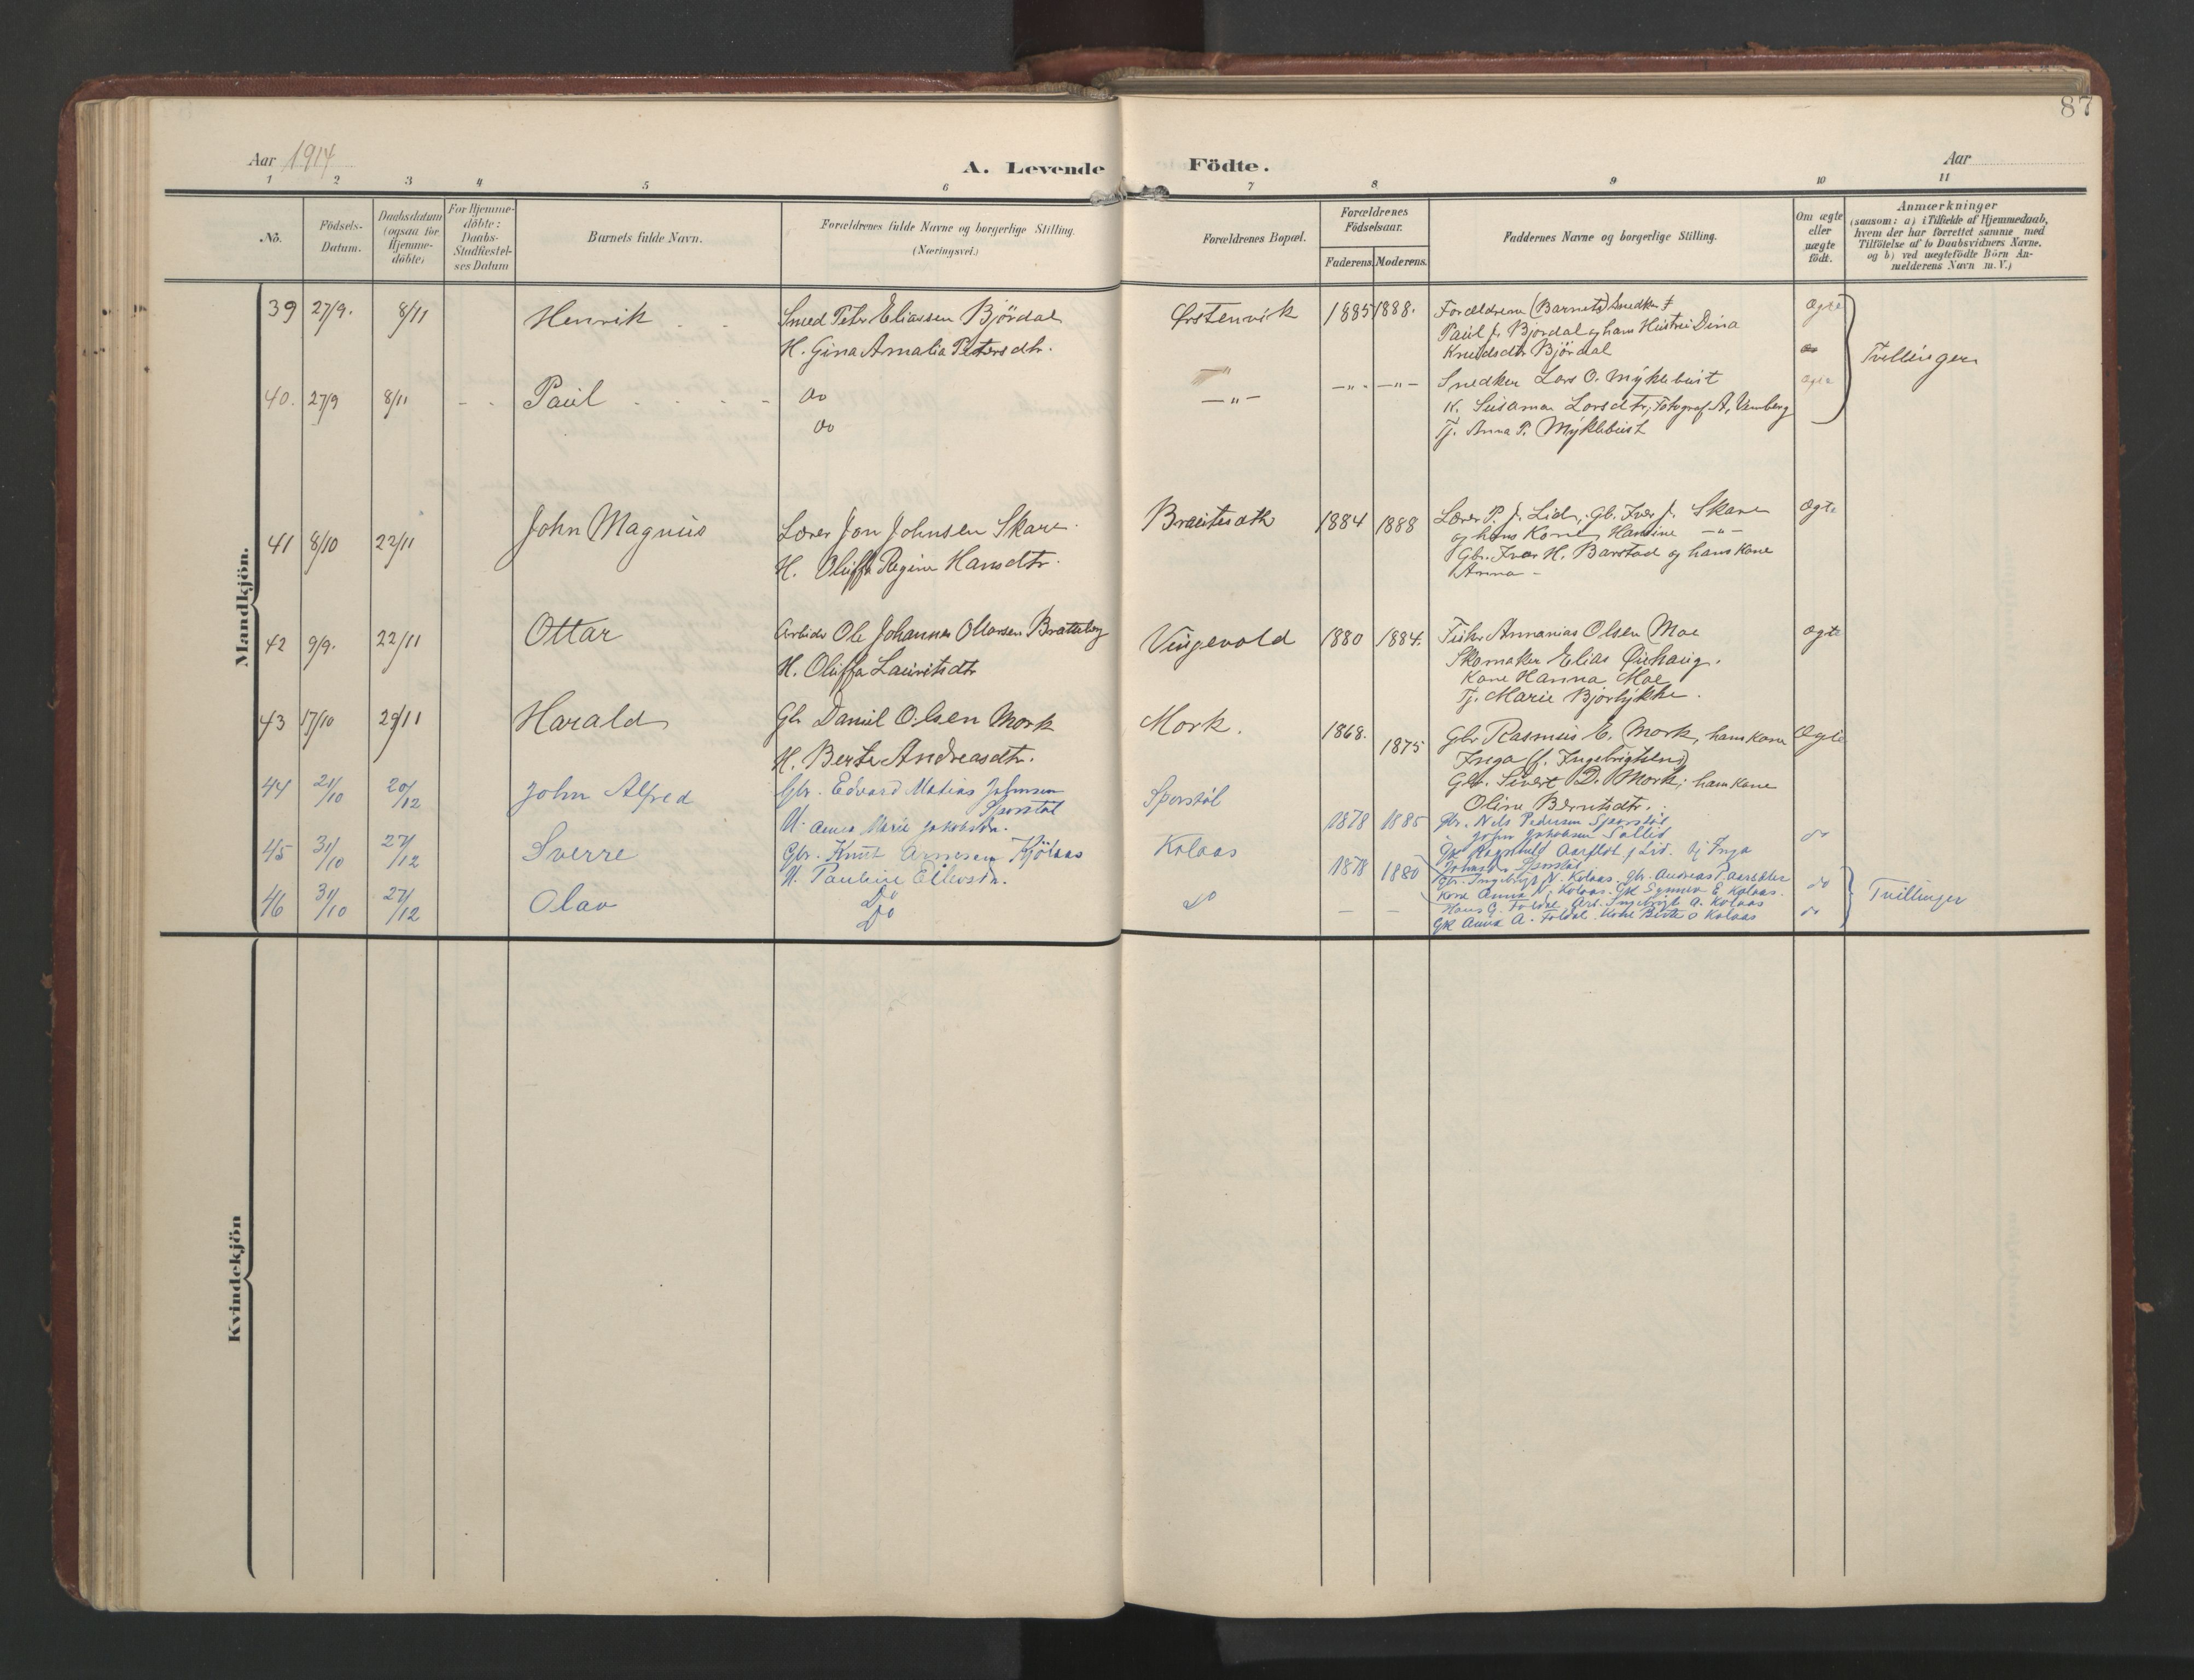 87
Aar 1914
A. Levende Födte.
Aar
1 2 3 4 5 6 7 8 9 10 11
No.
Födsels-
Datum.
Daabsdatum
(ogsaa for
Hjemme-
döbte)
For Hjemme-
döbte:
Daabs-
Stadfæstel-
ses Datum
Barnets fulde Navn.
Forældrenes fulde Navne og borgerlige Stilling.
(Næringsvei.)
Forældrenes Bopæl.
Forældrenes
Födselsaar.
Faderens. Moderens.
Faddernes Navne og borgerlige Stilling.
Om ægte
eller
uægte
födt.
Anmærkninger
(saasom: a) i Tilfælde af Hjemmedaab,
hvem der har forrettet samme med
Tilföielse af to Daabsvidners Navne.
og b) ved uægtefödte Börn An-
melderens Navn m. V.)
Mandkjön.
39 27/9. 8/11 Henrik
Smed Peter Eliassen Björdal
H. Gina Amalia Petersdtr.
Ørstenvik 1885 1888.
Forældrene (Barnets) Snedker
Paul J. Bjordal og hans Hustru Dina
Knudsdtr Björdal
Ægte
Tvillinger
40. 27/9 8/11 - - Paul
do
do
— " — — " - — " -
Snedker Lars O. Myklebust
K. Susanna Larsdtr, Fotograf A. Vemberg
Tj. Anna P. Myklebust
Ægte
41 8/10 22/11 John Magnus
Lærer Jon Johnsen Skare
H. Oluffa Regine Hansdtr.
1884 1888
Lærer P. J. Lid, Gb. Iver J. Skare
og hans Kone Hansine — " —
Gbr. Iver H. Barstad og hans Kone
Anna -
Ægte
42 9/9. 22/11 Ottar
Arbeider Ole Johannes Ottarsen Bratteberg
H. Oluffa Lauritsdtr
Vingevold 1880 1884.
Ananias Olsen Moe
Skomaker Elias
Kone Hanna Moe
Tj. Marie Bjorlykke.
Ægte
43 17/10 29/11 Harald
Gb Daniel Olsen Mork
H. Berte Andreasdtr.
Mork. 1868. 1875
Gbr Rasmus E. Mork, hans Kone
Inga (f. Ingebrigtsen)
Gbr. Sivert D. Mork; hans Kone
Oline Berntsdtr.
Ægte
44 21/10 20/12 John Alfred
Gbr. Edvard Matias Johnsen
Sporstöl
H. Anna Marie Jakobsdtr.
Sporstöl 1878 1885
Gbr. Nils Pedersen Sporstöl
" John Jakobsen Sollid
Gk Ragnhild Aarflot, Lid. Pj Inga
Johnsdtr. Sporstöl
do
45 31/10 27/12 Sverre
Gbr. Knut Arnesen Kjölaas
H. Pauline Eilevsdtr.
Kolaas 1878 1880
Gbr. Ingebrigt N. Kolaas, Gbr. Andreas P Aarsæter
Kone Anna N. Kolaas. Gk Synnev E Kolaas.
do
Tvillinger
46 31/10 27/12 Olav
Do
Do
do — —
Hans G. Foldal, Arb. Ingebrigt A. Kolaas
Gk Anna A. Foldal. Kone Berte O Kolaas
do
Kvindekjön